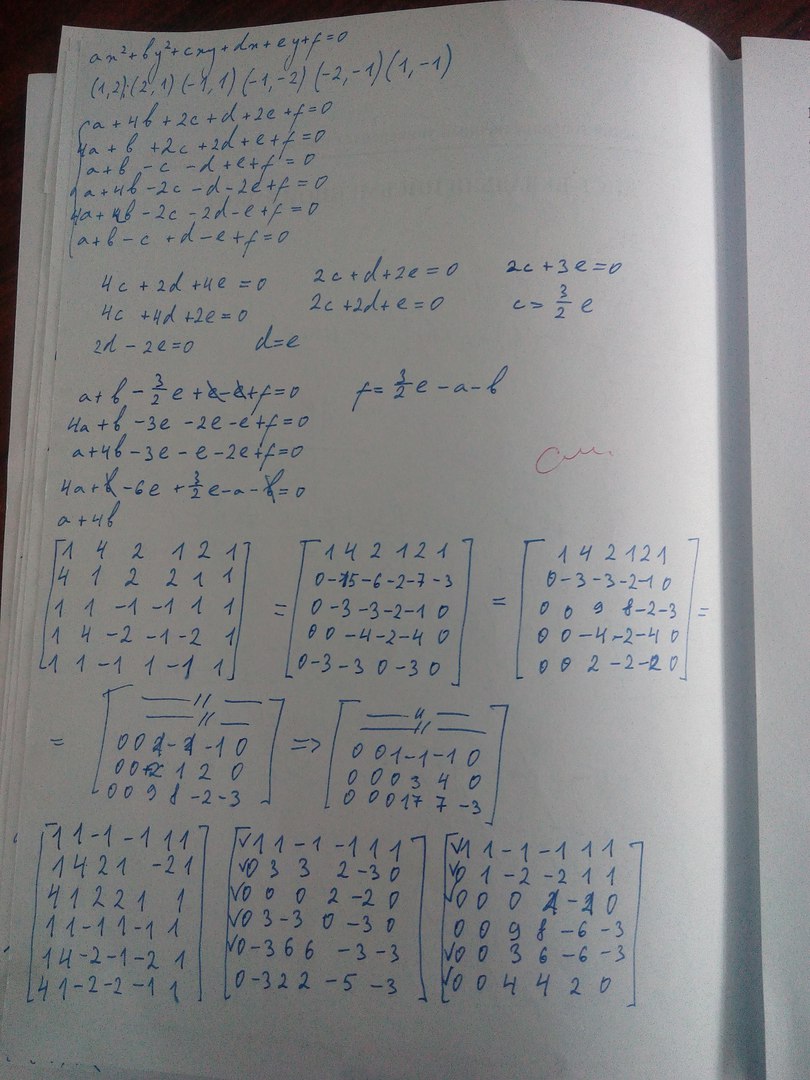 ax²+by²+cxy+dx+ey+f=0
(1,2);(2,1) (-1,1) (-1,-2) (-2,-1) (1,-1)
a+4b+2c+d+2e+f=0
4a+b+2c+2d+e+f=0
a+b-c-d+e+f=0
a+4b-2c-d-2e+f=0
4a+b-2c-2d-e+f=0
a+b-c+d-e+f=0
4c+2d+4e=0 2c+d+2e=0 2c+3e=0
4c+4d+2e=0 2c+2d+e=0 c=3/2 e
2d-2e=0 d=e
a+b-3/2 e+e-e+f=0 f=3/2 e-a-b
4a+b-3e-2e-e+f=0
a+4b-3e-e-2e+f=0
4a+b-6e+3/2 e-a-b=0
a+4b
[1 4 2 1 2 1] [1 4 2 1 2 1] [1 4 2 1 2 1]
[4 1 2 2 1 1] [0 -15 -6 -2 -7 -3] [0 -3 -3 -2 -1 0]
[1 1 -1 -1 1 1] = [0 -3 -3 -2 -1 0] = [0 0 9 8 -2 -3] =
[1 4 -2 -1 -2 1] [0 0 -4 -2 -4 0] [0 0 -4 -2 -4 0]
[1 1 -1 1 -1 1] [0 -3 -3 0 -3 0] [0 0 2 -2 -2 0]
[— // —] [— // —]
[— // —] [— // —]
= [0 0 -1 0] => [0 0 1 -1 -1 0]
[0 0 1 2 0] [0 0 0 3 4 0]
[0 0 9 8 -2 -3] [0 0 0 17 7 -3]
[1 1 -1 -1 1 1] [√1 1 -1 -1 1 1] [√1 1 -1 -1 1 1]
[1 4 2 1 -2 1] [√0 3 3 2 -3 0] [√0 1 -2 -2 1 1]
[4 1 2 2 1 1] [√0 0 0 2 -2 0] [√0 0 0 0]
[1 1 -1 1 -1 1] [√0 3 -3 0 -3 0] [0 0 9 8 -6 -3]
[1 4 -2 -1 -2 1] [√0 -3 6 6 -3 -3] [√0 0 3 6 -6 -3]
[4 1 -2 -2 -1 1] [0 -3 2 2 -5 -3] [√0 0 4 4 2 0]